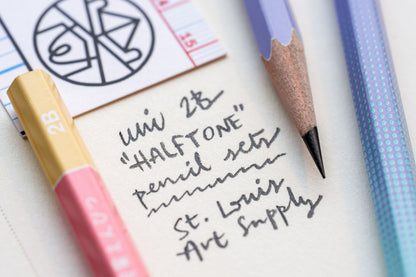 uni 2B
"HALFTONE"
pencil sets
St. Louis
Art Supply
2B
15